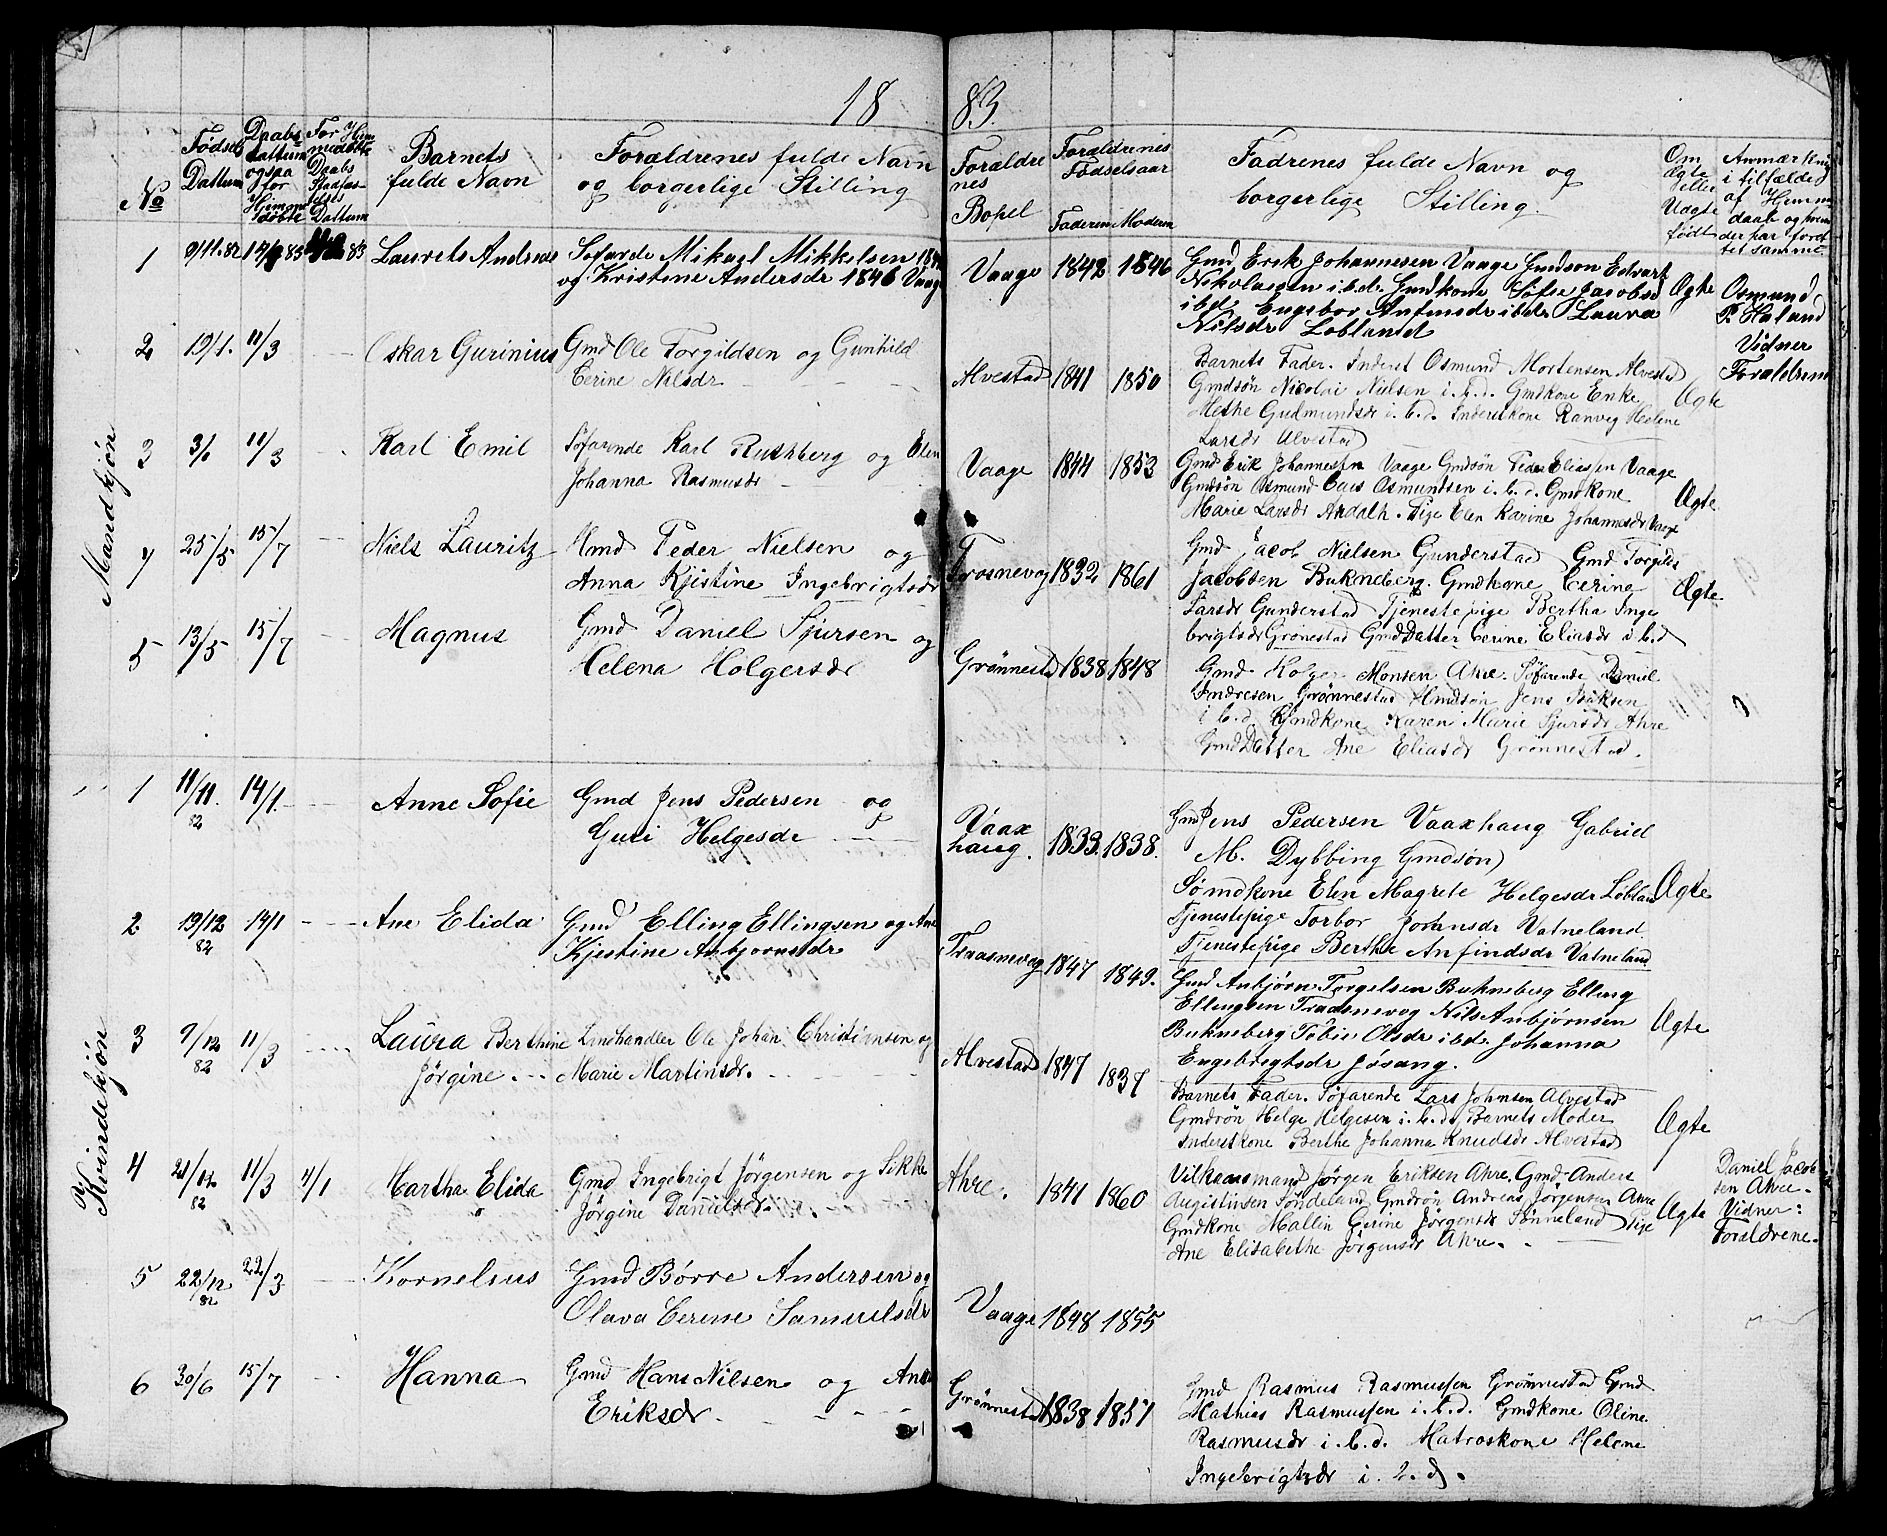 18 83.
No
Fødsels Dattum
Daabs dattum ogsaa for Hjemme døbte
For Hjem medøbte Daabs Stadfæs telses Dattum
Barnets fulde Navn
Forældrenes fulde Navn og borgerlige Stilling
Forældre nes Bopel
Forældrenes Fødselsaar
Faderen Moderen
Fadrenes fulde Navn og borgerlige Stilling.
Om Ægte eller Uægte født
Anmærkni i tilfælde af Hjemme daab og hvem der har forret tet samme
Mandkjøn
1 9/11.82 83 83 Laurets Andreas
Søfarde Mikael Mikkelsen
og Kristine Andersdr 1846 Vaage
Vaage 1842 1846
Gmd Erik Johannesen Vaage Gmdsøn Edvart
Nikolassen i.b.d. Gmdkone Sofie Jacobsd
ibd Engebor Anfinsdr ibdr Laura
Nilsdr Løbland
Ægte
Osmund
P. Høland
Vidner
Forældrene
2 19/1. 11/3 Oskar Gurinius
Gmd Ole Torgildsen og Gunhild
Cerine Nilsdr
Alvestad 1841 1850
Barnets Fader. Inderst Osmund Mortensen Alvestad
Gmdsøn Nicolai Nielsen i.b.d. Gmdkone Enke
Methe Gudmundsdr i.b.d. Inderstkone Ranveg Helene
Larsdr Alvestad
Ægte
3 3/1 11/3 Karl Emil
Søfarende Karl Ruthberg og Elen
Johanna Rasmusdr
Vaage 1844 1853
Gmd Erik Johannesen Vaage Gmdsøn Peder Eliassen Vaage
Gmdsøn Osmund Osmundsen i.b.d. Gmdkone
Marie Larsdr Ardalh. Pige Elen Karine Johannesdr Vaage
Ægte
4 25/5 15/7 Niels Lauritz
Hmd Peder Nielsen og
Anna Kjistine Ingebrigtsdr
Trosnevog 1832 1861
Gmd Jacob Nielsen Gunderstad Gmd Torgils
Jacobsen Bukneberg. Gmdkone Cerine
Larsdr Gunderstad Tjenestepige Bertha Inge
brigtsdr Grønestad Gmd Datter Cerine Eliasdr i.b.d
Ægte
5 13/5 15/7 Magnus
Gmd Daniel Sjursen og
Helena Holgersdr
Grønnestad 1838 1848
Gmd Holger Monsen Ahre. Søfarende Daniel
Indresen Grønnestad Hmdsøn Jens Isaksen
i b.d Gmdkone Karen Marie Sjursdr Ahre
Gmd Datter Ane Eliasdr Grønnestad.
af Kvindekjøn
1 11/11. 82 14/1. Anne Sofie
Gmd Jens Pedersen og
Guri Helgesdr
Vaax haug. 1833. 1838.
Gmd Jens Pedersen Vaaxhaug Gabriel
M. Dybbing Gmdsøn
Sømdkone Elen Magrete Helgesdr Løbland
Tjenestepige Torbor Johnsdr Vatneland
Tjenestepige Berthe Anfindsdr Vatneland
Ægte
2. 19/12 82 14/1 Ane Elida
Gmd Elling Ellingsen og Ane
Kjestine Anbjørnsdr
Traasnevog 1847 1849.
Gmd Anbjørn Torgelsen Bukneberg Elling
Ellingsen Traasnevog Nils Anbjørnsen
Bukneberg Tobie Olsdr i bd. Johanna
Engebrigtsdr Jøsang.
Ægte
3 7/12 82 11/3 Laura Berthine Jørgine
Lindhandler Ole Johan Christiansen og
Marie Martinsdr.
Alvestad 1847 1837
Barnets Fader. Søfarende Lars Johnsen Alvestad
Gmdsøn Helge Helgesen i.b.d. Barnets Moder
Inderstkone Berthe Johanna Knudsdr Alvestad
Ægte
4 21/12 82 11/3 4/1 Martha Elida
Gmd Ingebrigt Jørgensen og Sikke
Jørgine Danielsdr.
Ahre. 1841 1860
Vilkaarsmand Jørgen Eriksen Ahre. Gmd Anders
Augustinsen Søndeland Gmdsøn Andreas Jørgensen Ahre
Gmdkone Mallin Cerine Jørgensdr Sønneland Pige
Ane Elisabethe Jørgensdr Ahre.
Ægte
Daniel Jacob
sen Ahre.
Vidner:
Forældrene.
5 22/12 82 22/3 Kornelius
Gmd Børre Andersen og
Olava Cerine Samuelsdr
Vaage 1848 1855
6 30/6 15/7 Hanna
Gmd Hans Nilsen og Ane
Eriksdr
Grønnestad 1838 1857
Gmd Rasmus Rasmussen Grønnestad Gmd
Mathias Rasmussen i.b.d. Gmdkone Oline
Rasmusdr i.b.d. Matroskone Helene
Ingebrigtsdr i.b.d.